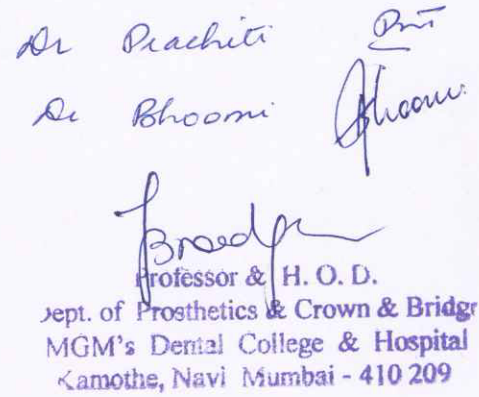 Dr Prachiti
Dr Bhoomi Bhoomi
Professor & H. O. D.
Dept. of Prosthetics & Crown & Bridge
MGM's Dental College & Hospital
Kamothe, Navi Mumbai - 410 209